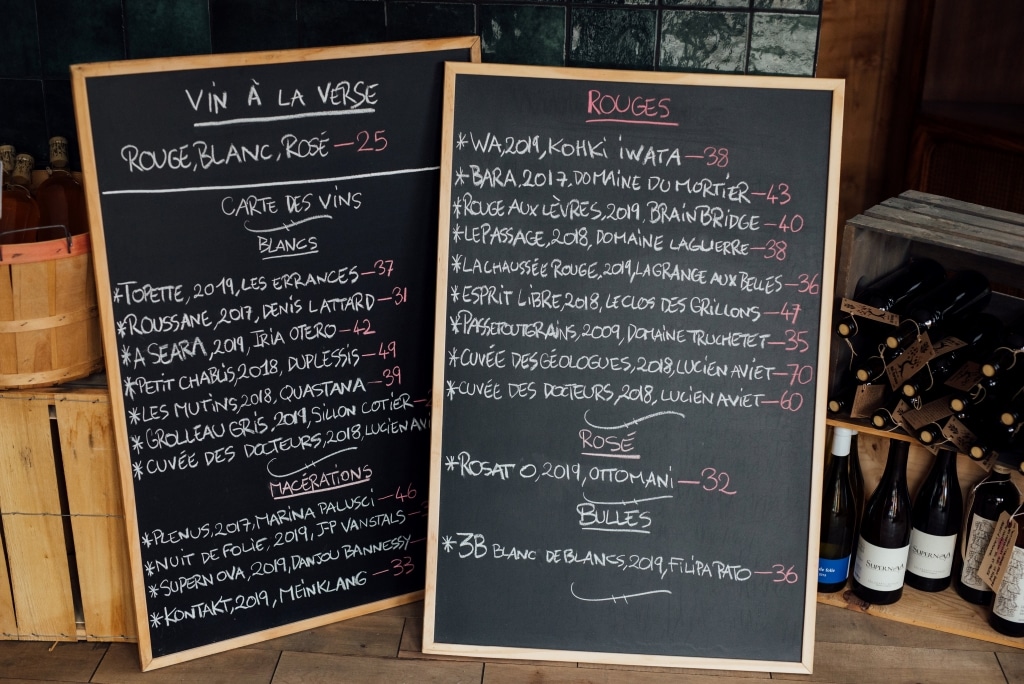 VIN À LA VERSE
ROUGE, BLANC, ROSÉ — 25
CARTE DES VINS
BLANCS
*TOPETTE, 2019, LES ERRANCES — 37
*ROUSSANE, 2017, DENIS LATTARD — 31
*A SEARA, 2019, IRIA OTERO — 42
*PETIT CHABLIS, 2018, DUPLESSIS — 49
*LES MUTINS, 2018, QUASTANA — 39
*GROLLEAU GRIS, 2019, SILLON COTIER —
*CUVÉE DES DOCTEURS, 2018, LUCIEN AVI
MACÉRATIONS
*PLENUS, 2017, MARINA PALUSCI — 46
*NUIT DE FOLIE, 2019, J-P VANSTALS —
*SUPERNOVA, 2019, DANJOU BANNESSY —
*KONTAKT, 2019, MEINKLANG — 33
ROUGES
*WA, 2019, KOHKI IWATA — 38
*BARA, 2017, DOMAINE DU MORTIER — 43
*ROUGE AUX LÈVRES, 2019, BRAINBRIDGE — 40
*LE PASSAGE, 2018, DOMAINE LAGUERRE — 38
*LA CHAUSSÉE ROUGE, 2019, LA GRANGE AUX BELLES — 36
*ESPRIT LIBRE, 2018, LE CLOS DES GRILLONS — 47
*PASSETOUTGRAINS, 2009, DOMAINE TRUCHETET — 35
*CUVÉE DES GÉOLOGUES, 2018, LUCIEN AVIET — 70
*CUVÉE DES DOCTEURS, 2018, LUCIEN AVIET — 60
ROSÉ
*ROSATO, 2019, OTTOMANI — 32
BULLES
*3B BLANC DE BLANCS, 2019, FILIPA PATO — 36
SUPERNOVA
SUPERNOVA